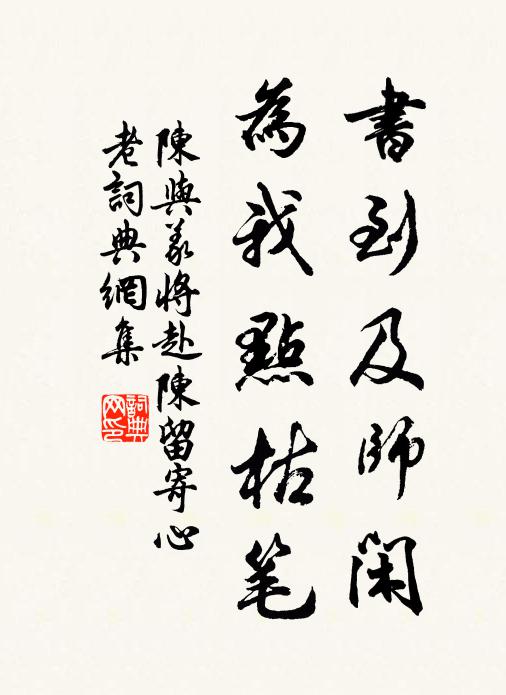 書到及師閑
為我點枯笔
陳與義將赴陳留寄心
老詞典網集
詞典网印